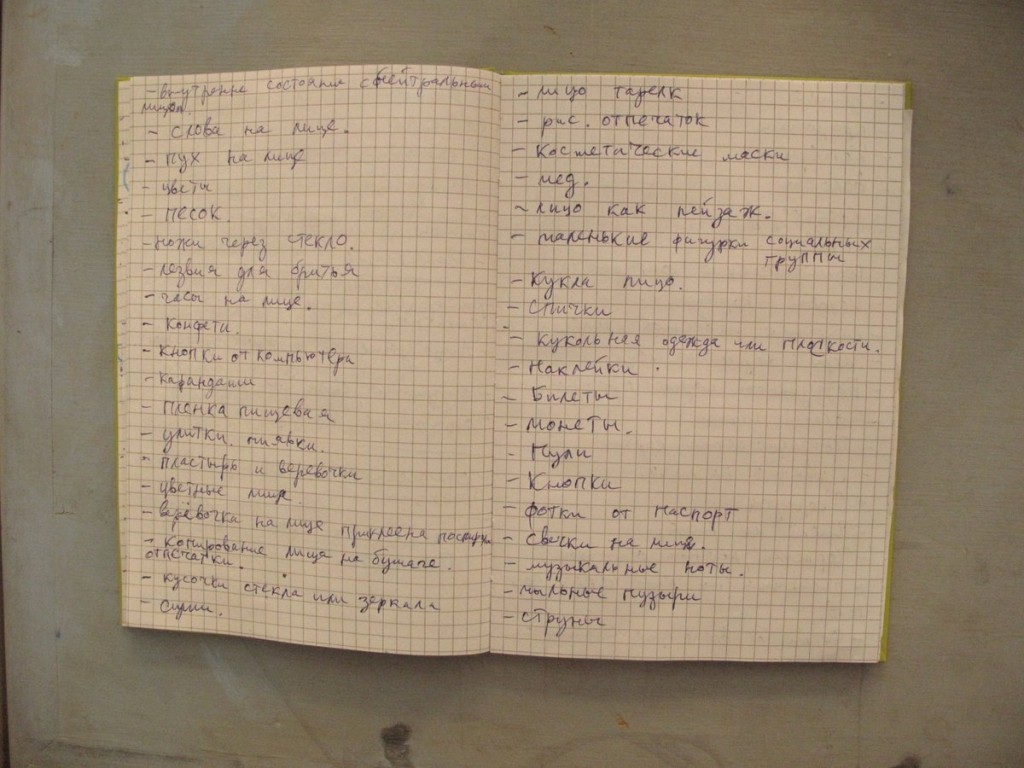 - внутренне состояние с нейтральным
лицом.
- слова на лице.
- пух на лице
- цветы
- песок.
- ножи через стекло.
- лезвия для бритья
- часы на лице.
- Конфети.
- кнопки от компьютера
- карандаши
- пленка пищевая
- улитки. пиявки.
- пластырь и веревочки
- цветные лица.
- верёвочка на лице приклеена
- копирование лица на бумаге.
отпечатки.
- кусочки стекла или зеркала
- лицо тарелк
- рис. отпечаток
- косметические маски
- мед.
- лицо как пейзаж.
- маленькие фигурки социальных
группы
- Кукла лицо.
- спички
- кукольная одежда или
- Наклейки.
- Билеты
- монеты.
- Пули
- Кнопки
- фотки от паспорт
- свечки на лице.
- музыкальные ноты.
- мыльные пузыри
- струны